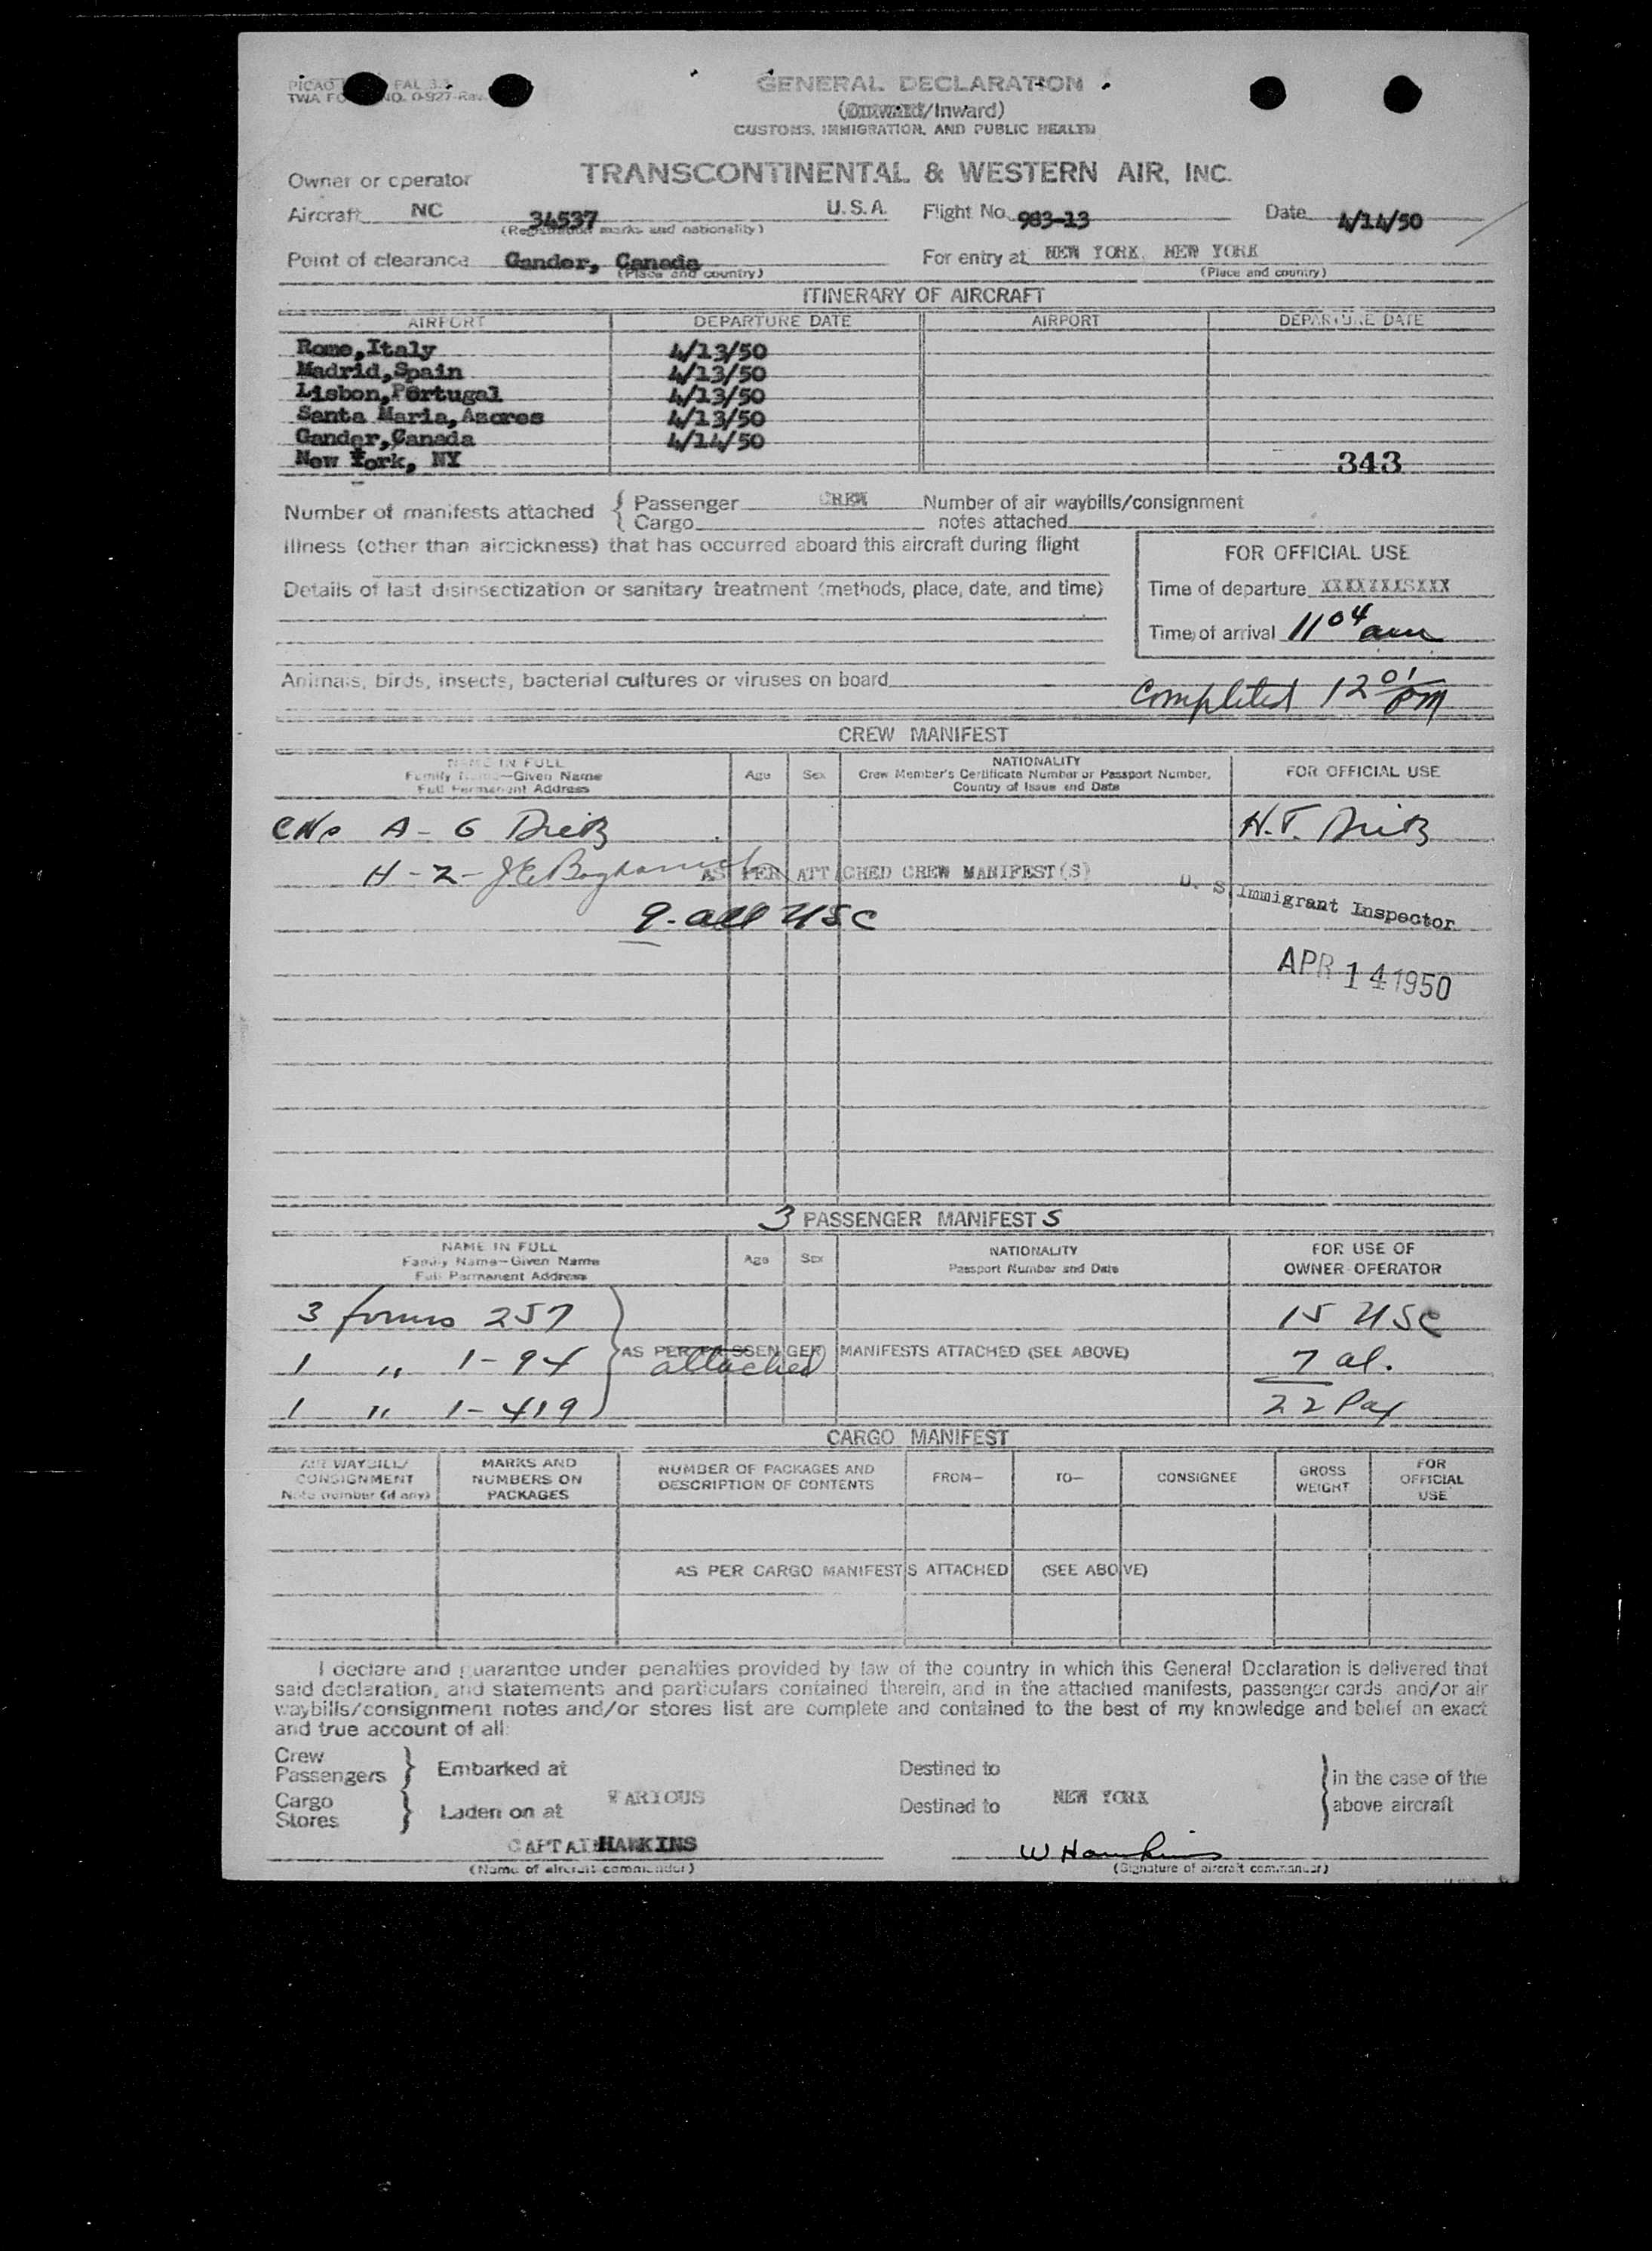 PICAO FAL 3.3
TWA FO NO. 0-927-Rev.
GENERAL DECLARATION
(Outward/Inward)
CUSTOMS, IMMIGRATION, AND PUBLIC HEALTH
Owner or operator TRANSCONTINENTAL & WESTERN AIR, INC.
Aircraft NC 34537 U.S.A. Flight No. 983-13 Date 4/14/50
(Registration marks and nationality)
Point of clearance Gander, Canada For entry at NEW YORK, NEW YORK
(Place and country) (Place and country)
ITINERARY OF AIRCRAFT
AIRPORT DEPARTURE DATE AIRPORT DEPARTURE DATE
Rome,Italy 4/13/50
Madrid,Spain 4/13/50
Lisbon,Portugal 4/13/50
Santa Maria,Azores 4/13/50
Gander,Canada 4/14/50
New York, NY 343
Number of manifests attached { Passenger CREW Number of air waybills/consignment
Cargo notes attached
Illness (other than airsickness) that has occurred aboard this aircraft during flight
FOR OFFICIAL USE
Details of last disinsectization or sanitary treatment (methods, place, date, and time)
Time of departure XXXXXXXSXXX
Time of arrival 11 04 am
Animals, birds, insects, bacterial cultures or viruses on board
Completed 12 01 PM
CREW MANIFEST
NAME IN FULL
Family Name—Given Name
Full Permanent Address
Age Sex
NATIONALITY
Crew Member's Certificate Number or Passport Number,
Country of Issue and Date
FOR OFFICIAL USE
A - 6
H - 2 -
AS PER ATTACHED CREW MANIFEST(S)
U. S. Immigrant Inspector
9 - all USC
APR 14 1950
3 PASSENGER MANIFESTS
NAME IN FULL
Family Name—Given Name
Full Permanent Address
Age Sex
NATIONALITY
Passport Number and Date
FOR USE OF
OWNER-OPERATOR
3 forms 257 15 USC
1 " 1-94 AS PER PASSENGER MANIFESTS ATTACHED (SEE ABOVE) 7 al.
attached
1 " 1-419 22 Pax
CARGO MANIFEST
AIR WAYBILL/
CONSIGNMENT
Note number (if any)
MARKS AND
NUMBERS ON
PACKAGES
NUMBER OF PACKAGES AND
DESCRIPTION OF CONTENTS
FROM— TO— CONSIGNEE
GROSS
WEIGHT
FOR
OFFICIAL
USE
AS PER CARGO MANIFESTS ATTACHED (SEE ABOVE)
I declare and guarantee under penalties provided by law of the country in which this General Declaration is delivered that
said declaration, and statements and particulars contained therein, and in the attached manifests, passenger cards and/or air
waybills/consignment notes and/or stores list are complete and contained to the best of my knowledge and belief an exact
and true account of all:
Crew
Passengers } Embarked at Destined to } in the case of the
VARIOUS NEW YORK
Cargo
Stores } Laden on at Destined to above aircraft
CAPTAIN HAWKINS W Hawkins
(Name of aircraft commander) (Signature of aircraft commander)